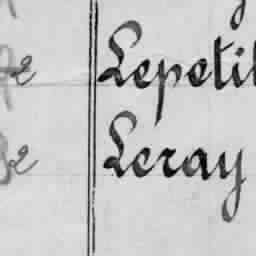 Lepetit
Leray